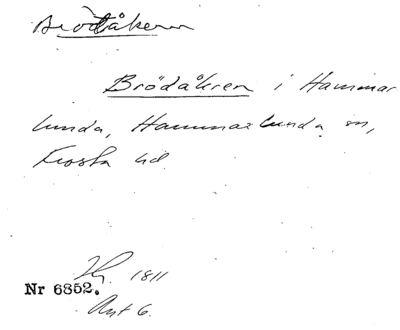 Brödåkern
Brödåkren i Hammar
lunda, Hammarlunda sn,
Frosta hd
Hy. 1811
Nr 6852.
Akt 6.